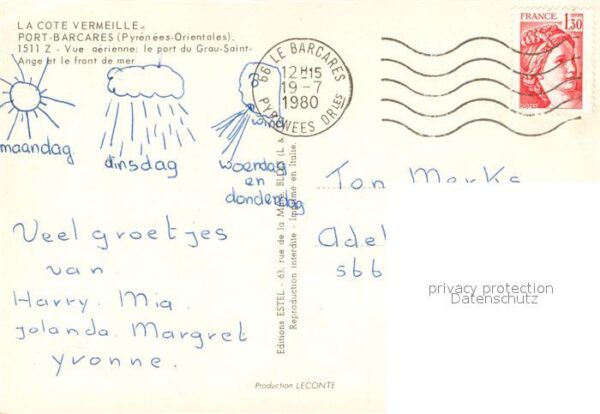 LA COTE VERMEILLE
PORT-BARCARES (Pyrénées-Orientales).
1511 Z - Vue aérienne: le port du Grau-Saint-
Ange et le front de mer
66 LE BARCARES
12 H15
19-7
1980
PYRENEES ORLES
FRANCE
1,30
maandag
dinsdag
wind
woendag
en
donderdag
Veel groetjes
van
Harry. Mia.
Jolanda. Margret
Yvonne.
Editions ESTEL - 63, rue de la
Reproduction interdite - Imprimé en Italie.
Ton
Adel
566
privacy protection
Datenschutz
Production LECONTE